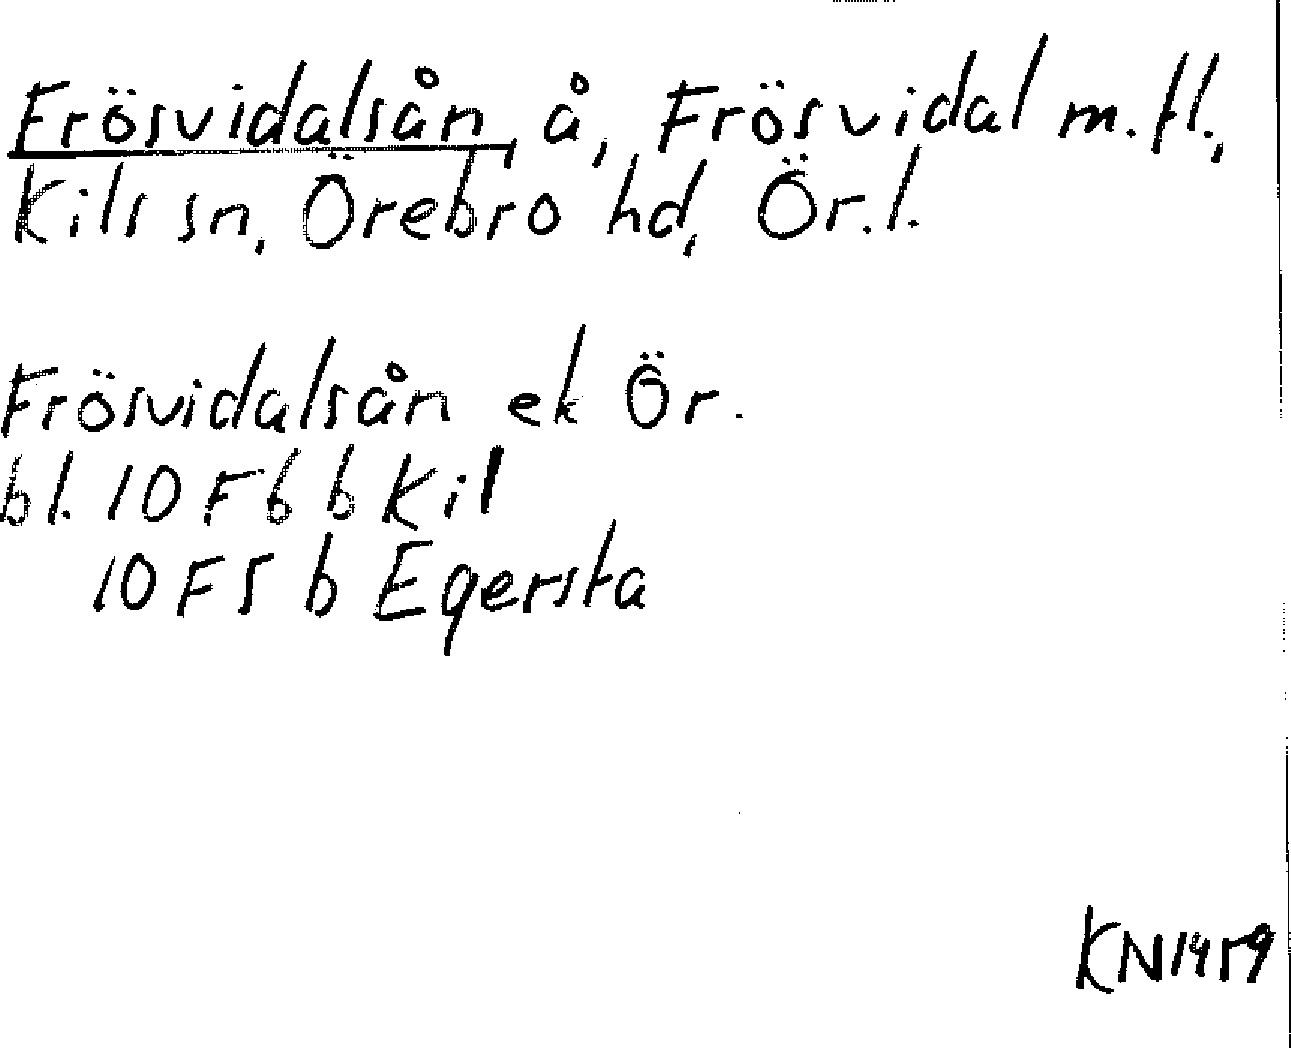 Frösvidalsån, å, Frösvidal m.fl.,
Kils sn, Örebro hd, Ör.l.
Frösvidalsån ek Ör.
bl. 10 F 6 b Kil
10 F 5 b Egersta
KN1459